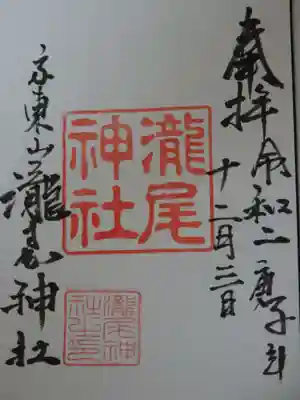 奉拝 令和二庚子年
十二月三日
瀧尾
神社
瀧尾神
社之印
京東山瀧尾神社